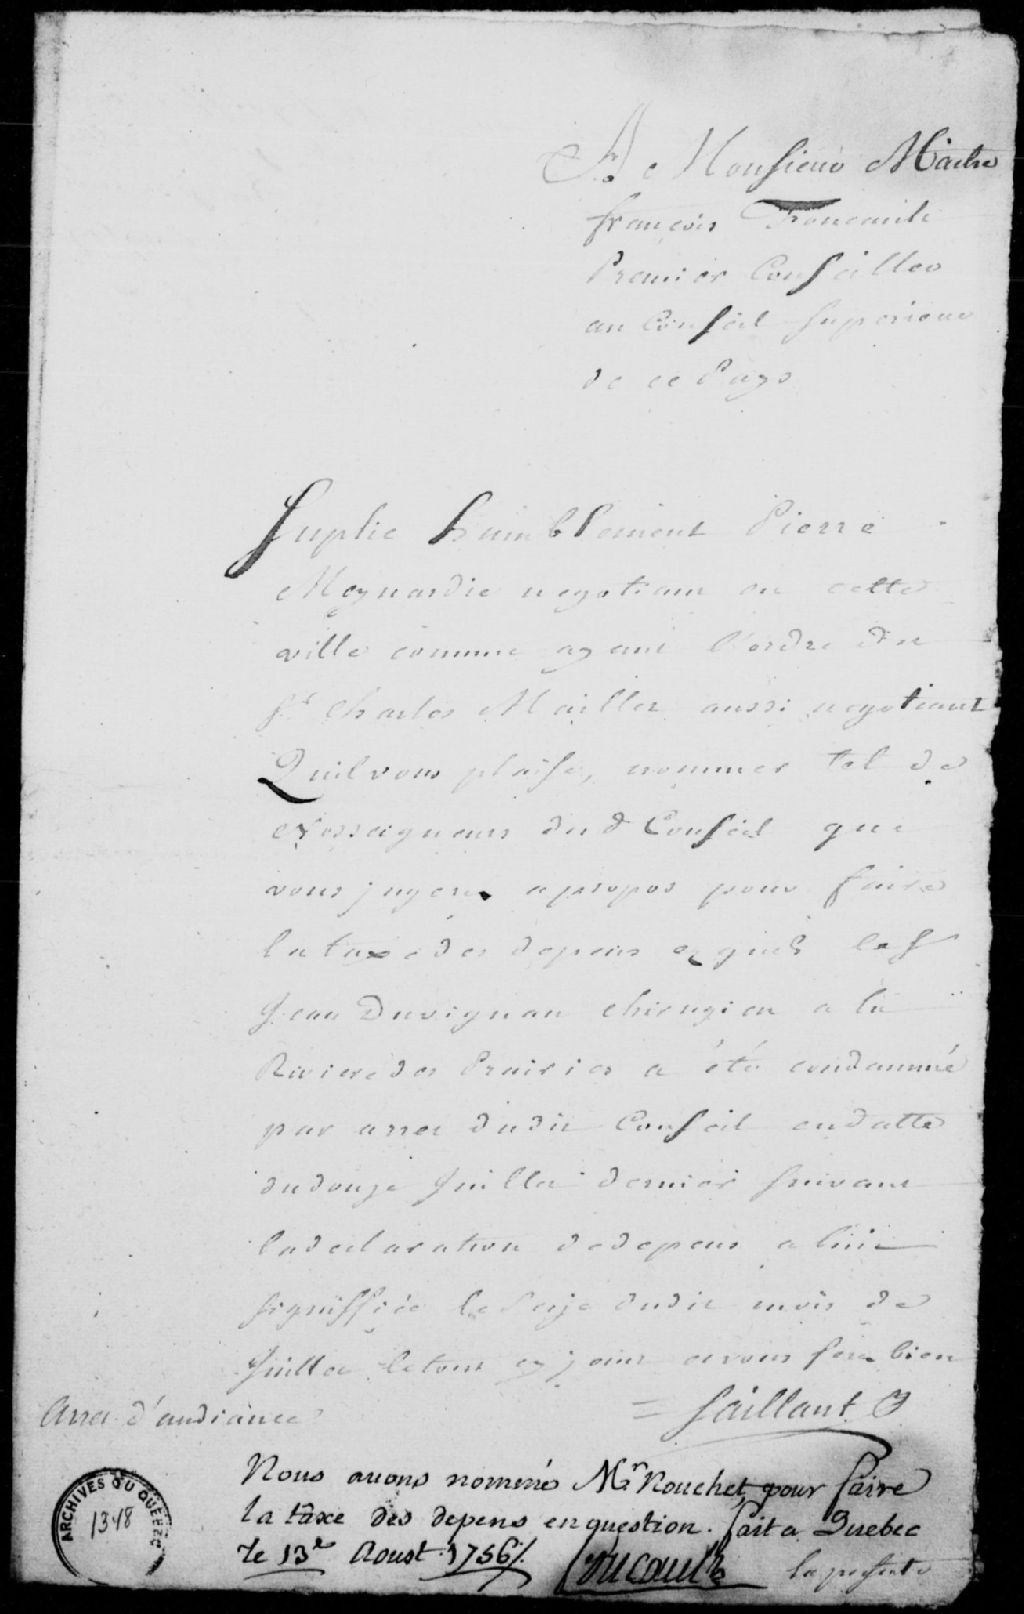 A Monsieur Maitre
françois Foucault
Premier Conseiller
au Conseil Superieur
de ce Pays
Suplie humblement Pierre
Meynardie negotiant en cette
ville comme ayant l'ordre du
Sr. Charles Maillet aussi negotiant
Quil vous plaise, nommer tel de
Messeigneurs dud Conseil que
vous jugerez apropos pour faire
la taxe des depens esquels le Sr
Jean Duvignau chirugien a la
Riviere des Prairies a été condamné
par arret dudit Conseil en datte
du douze Juillet dernier suivant
la declaration de depens a luie
signiffiée le seize dudit mois de
Juillet le tout cy joint et vous ferez bien
= Saillant
Arret d'audiance
Nous avons nommé Mr. Nouchet pour faire
la taxe des depens en question. fait a Quebec
le 13e Aoust 1756 /.
foucault
la presente
ARCHIVES DU QUÉBEC
1348